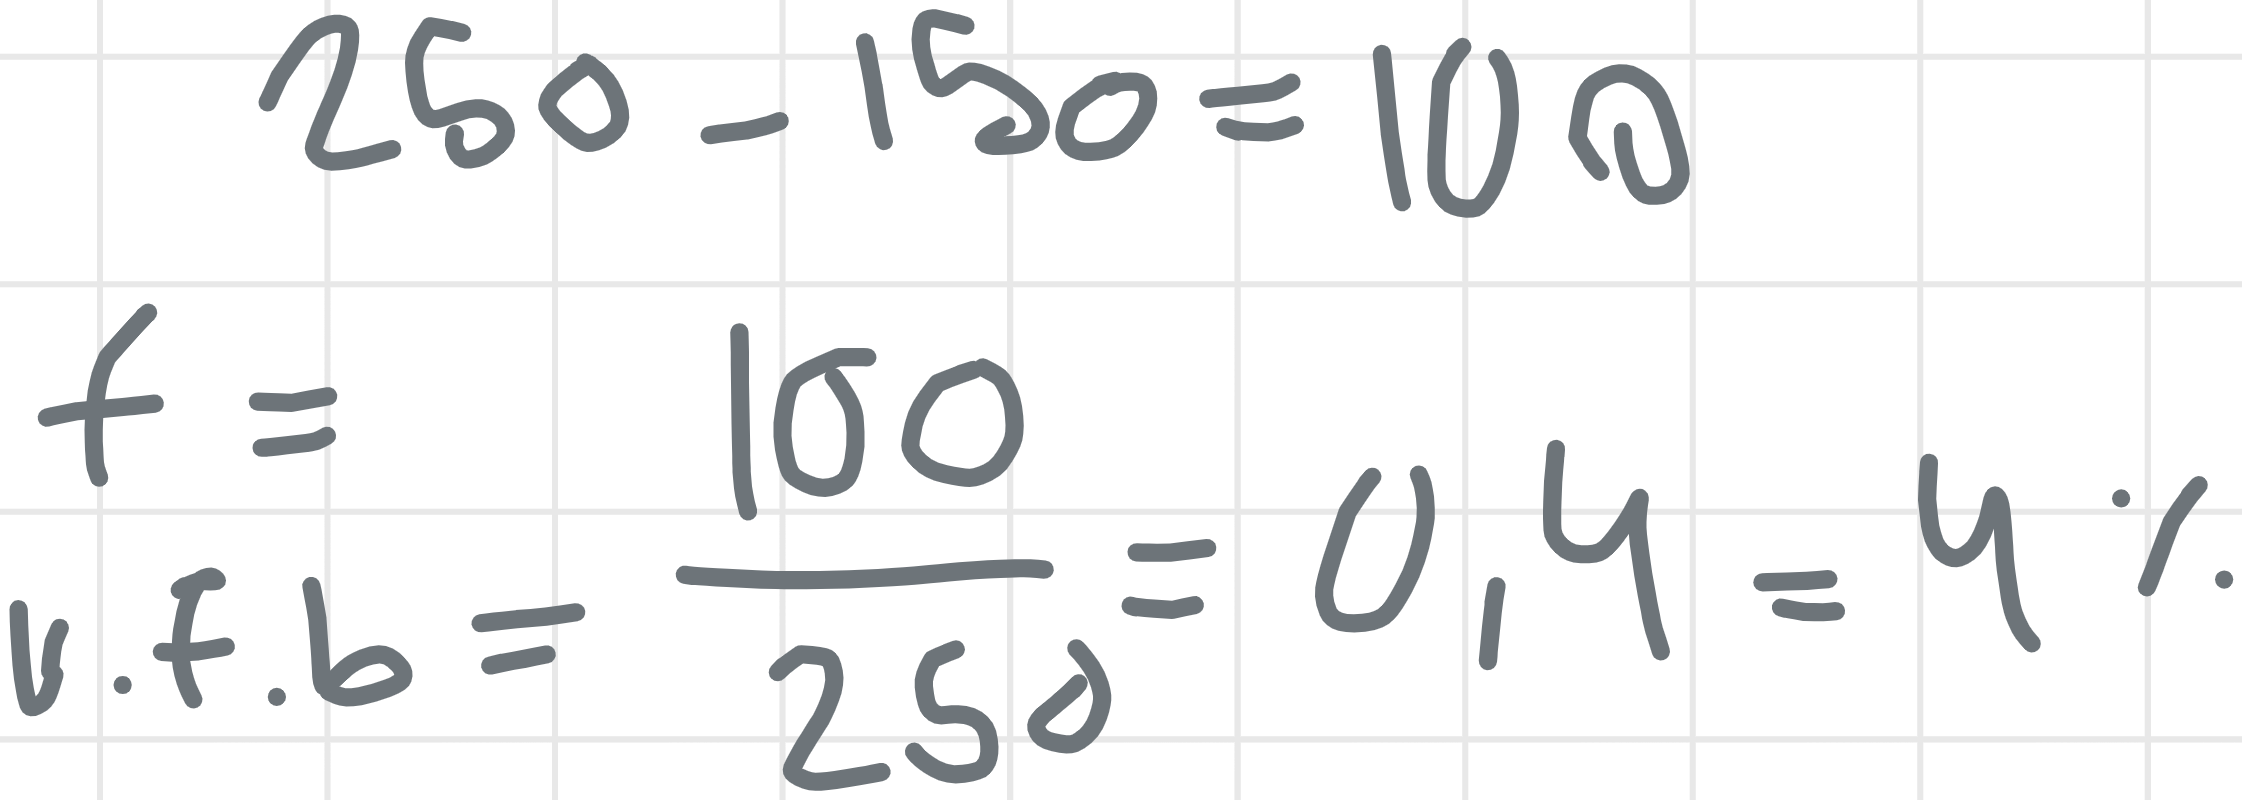 250 - 150 = 100
f =
v.f.b = 100/250 = 0,4 = 4 %